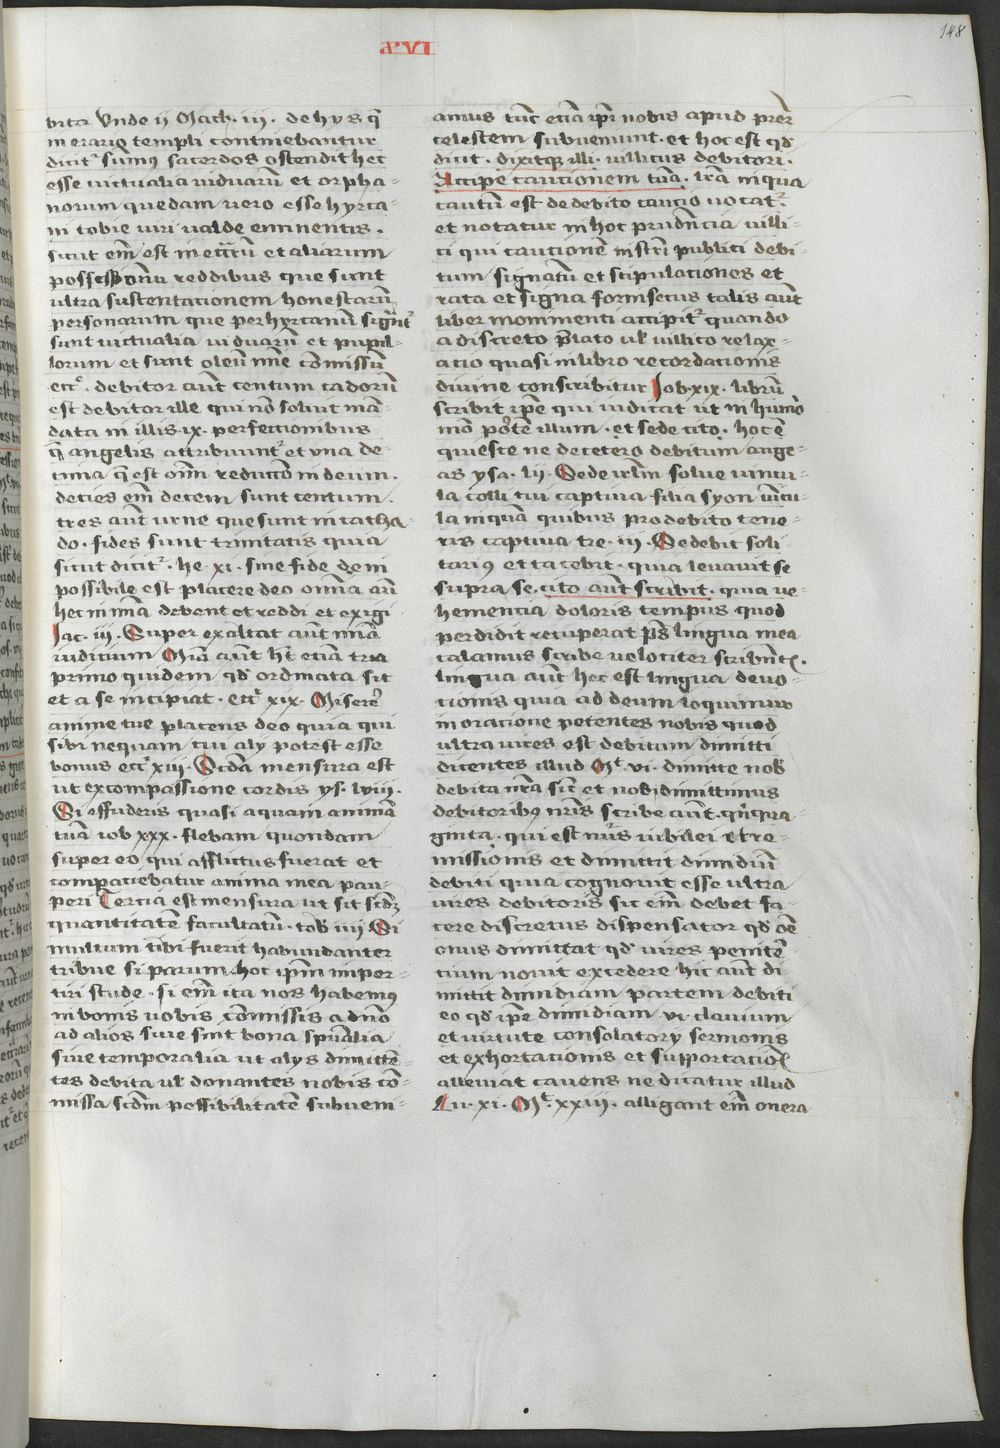 148
XVI
bita Vnde ii Mach. iii. de hys q̄
in erario templi continebantur
dicit᷑ sum᷒ sacerdos ostendit hec
esse uictualia uiduarū et orpha-
norum quedam uero esse hyrca-
ni tobie uiri ualde eminentis.
sicut em̄ est in et aliarum
possessionū reddibus que sunt
ultra sustentacionem honestarū
personarum que per hyrcanū
sunt uictualia uiduarū et pupil-
lorum et sunt oleū mīe cōmissū
etc̄. debitor aūt centum cadorū
est debitor ille qui nō soluit mā-
data in illis ix. perfectionibus
q̄ angelis attribuunt᷑ et vna de-
cima q̄ est om̄ī reductio in deum.
decies em̄ decem sunt centum.
tres aūt urne que sunt in catha-
do. fides sunt trinitatis quia
sicut dicit᷑. he. xi. sine fide deo īm
possibile est placere deo omnia aūt
hec in mīa debent et reddi et exigi
Jac. iii. Super exaltat aūt mīa
iudicium Mīa aūt h̄t etiā tria
primo quidem qd̄ ordinata sit
et a se incipiat. eccᷓ xix. Miserēr̄
anime tue placens deo quia qui
sibi nequam cui aly potest esse
bonus eccᷓ xiii. Scd̄a mensura est
ut ex compassione cordis ys. lviii.
Si effuderis quasi aquam animā
tuā iob xxx. flebam quondam
super eo qui afflictus fuerat et
compaciebatur anima mea pau-
peri Tercia est mensura ut sit scdm̄
quantitatem facultatū. tob̄ iiii Si
multum tibi fuerit habundanter
tribue si parum hoc ip̄m imper-
tiri stude. si em̄ ita nos habem᷒
in bonis nobis cōmissis a dn̄o
ad alios siue sint bona spūalia
siue temporalia ut alys dimittē-
tes debita ul̄ donantes nobis cō-
missa scdm̄ possibilitatē subueni-
amus tūc etiā ip̄i nobis apud pr̄em
celestem subuemunt. et hoc est qd̄
dicit. dixitque illi. uillicus debitori.
Accipe caucionem tuā. lr̄a in qua
cautū est de debito caucio uocat᷑.
et notatur in hoc prudēncia uilli-
ci qui cautionē instr̄i publici debi-
tum signatū et stipulationes et
rata et signa forinsecus talis aūt
liber monimenti accipit᷑ quando
a discreto p̄lato ul̄ uillico relax-
acio quasi in libro recordacionis
diuine conscribitur Job. xix. librū
scribit ip̄e qui iudicat ut in humō
mō portē illum. et sede cito. hoc ē
quiesce ne de cetero debitum ange-
as ysa. lii. Sede irl̄m solue uincu-
la colli tui captiua filia syon uīcu-
la inquā quibus pro debito tene-
ris captiua tre. iii. Sedebit soli-
tari᷒ et tacebit. quia leuauit se
supra se. cito aūt scribit. quia ue-
hemencia doloris tempus quod
perdidit recuperat ps̄ lingua mea
calamus scribe uelociter scribentꝭ.
lingua aūt hec est lingua deuo-
cionis quia ad deum loquimur
in oracione petentes nobis quod
ultra uires est debitum dimitti
dicentes illud Mt̄. vi. dimitte nob̄
debita nr̄a sic̄ et nos dimittimus
debitorib᷒ nr̄is scribe aūt. qⁱnqua-
ginta. qui est nūs iubilei et re-
missionis et dimittit dimidiū
debiti quia cognouit esse ultra
uires debitoris sic em̄ debet fa-
cere discretus dispensator qd̄ oē
onus dimittat qd̄ uires penitē-
cium nouit excedere hic aūt di
mittit dimidiam partem debiti
eo qd̄ ip̄e dimidiam vi clauium
et uirtute consolatory sermonis
et exhortacionis et supportaciōꝭ
alleuiat cauens ne dicatur illud
Lu. xi. Mt̄. xxiii. alligant em̄ onera